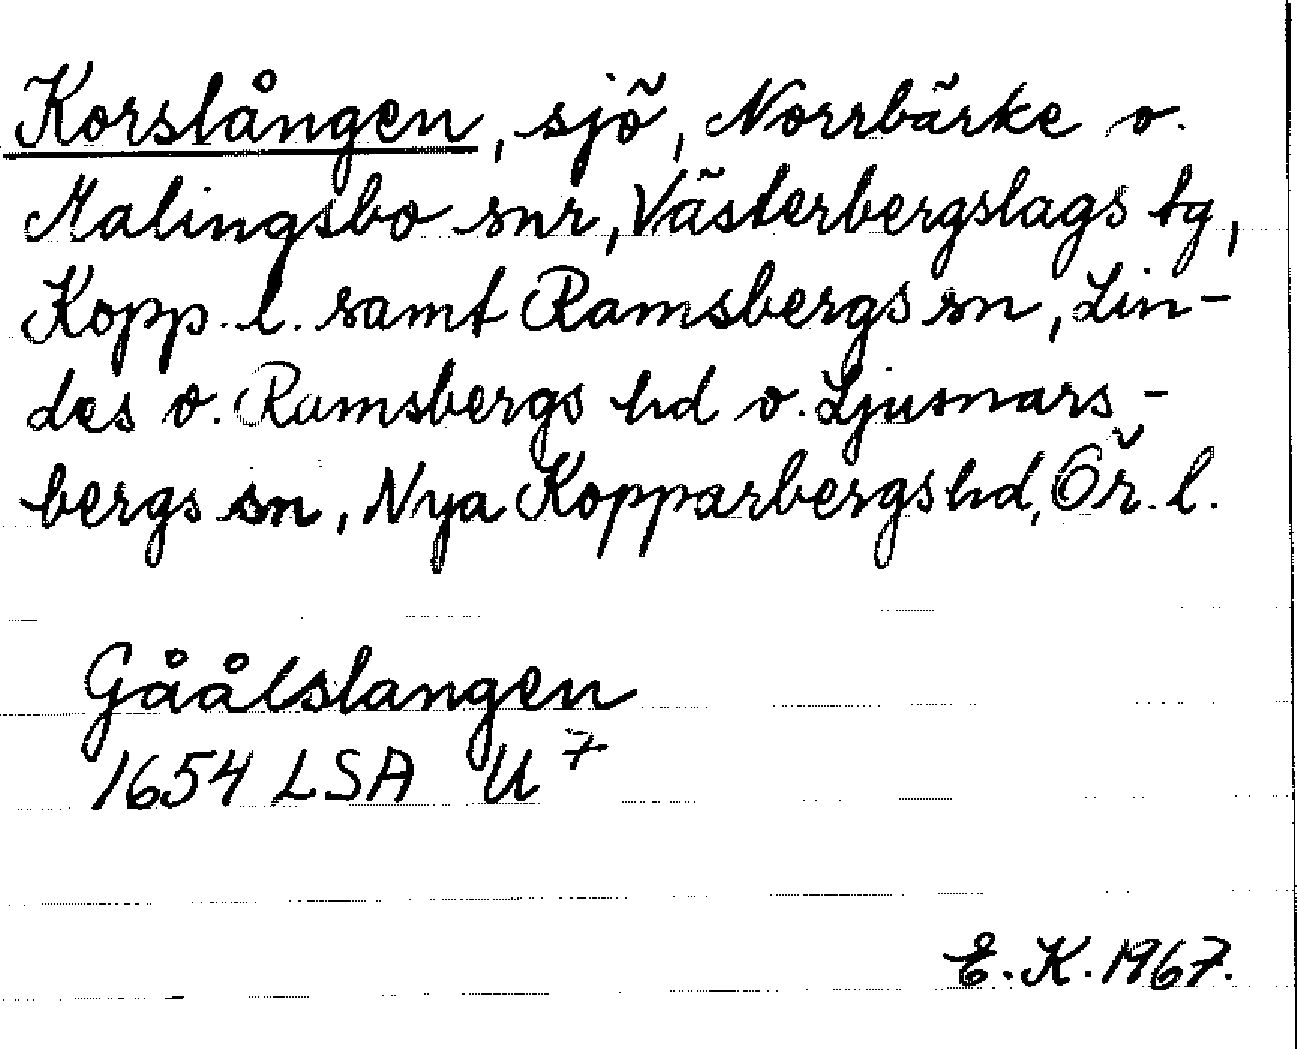 Korslången, sjö, Norrbärke o.
Malingsbo snr, Västerbergslags tg,
Kopp. l. samt Ramsbergs sn, Lin-
des o. Ramsbergs hd o. Ljusnars-
bergs sn, Nya Kopparbergs hd, Ör. l.
Gåålslangen
1654 LSA U 7
E. K. 1967.